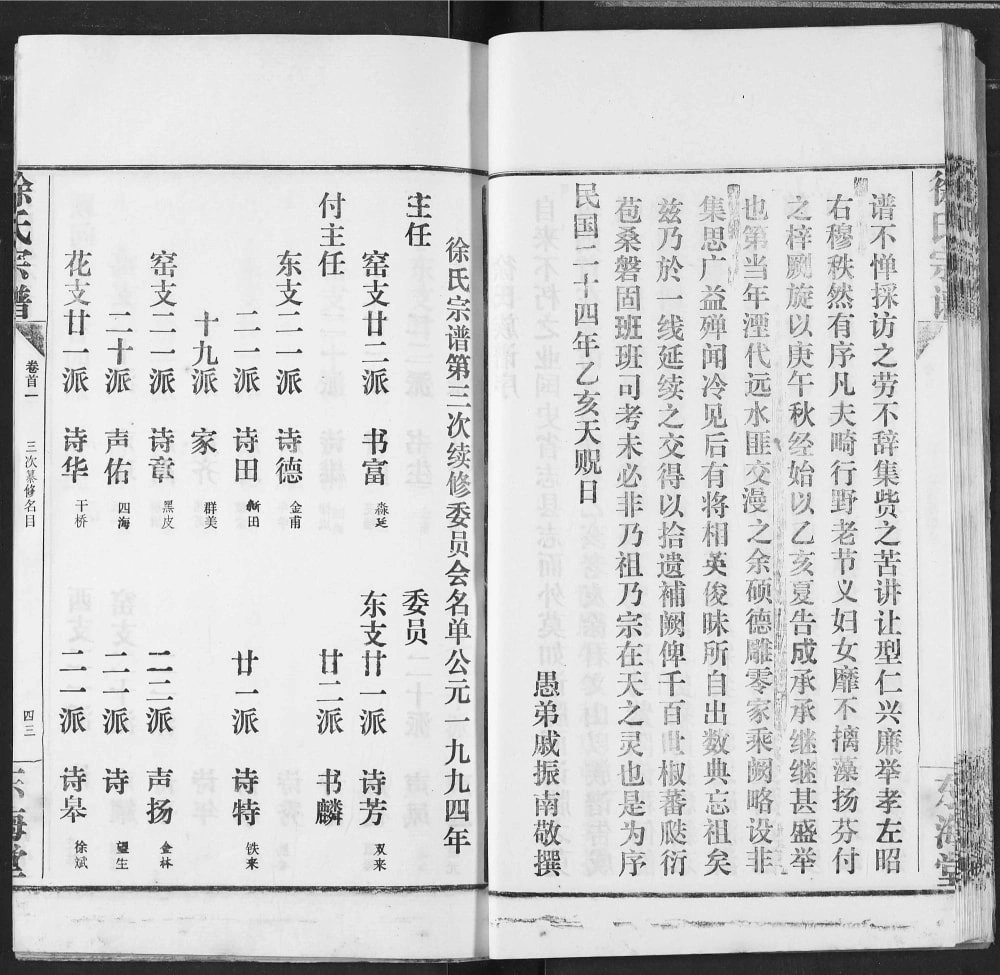 谱不惮採访之劳不辞集赀之苦讲让型仁兴廉举孝左昭
右穆秩然有序凡夫畸行野老节义妇女靡不摛藻扬芬付
之梓劂旋以庚午秋经始以乙亥夏告成承承继继甚盛举
也第当年湮代远水匪交漫之余硕德雕零家乘阙略设非
集思广益殚闻冷见后有将相英俊昧所自出数典忘祖矣
兹乃於一线延续之交得以拾遗補阙俾千百世椒蕃瓞衍
苞桑磐固班班司考未必非乃祖乃宗在天之灵也是为序
愚弟戚振南敬撰
民国二十四年乙亥天贶日
徐氏宗谱
东海堂
徐氏宗谱第三次续修委员会名单公元一九九四年
主任
委员
窑支廿二派 书富 森延
东支廿一派 诗芳 双来
付主任
廿二派 书麟
东支二一派 诗德 金甫
二一派 诗田 新田
廿一派 诗特 铁来
十九派 家 群美
窑支二一派 诗章 黑皮
二三派 声扬 金林
二十派 声佑 四海
二一派 诗 望生
花支廿一派 诗华 干桥
二一派 诗皋 徐斌
徐氏宗谱
卷首一
三次纂修名目
四三
东海堂